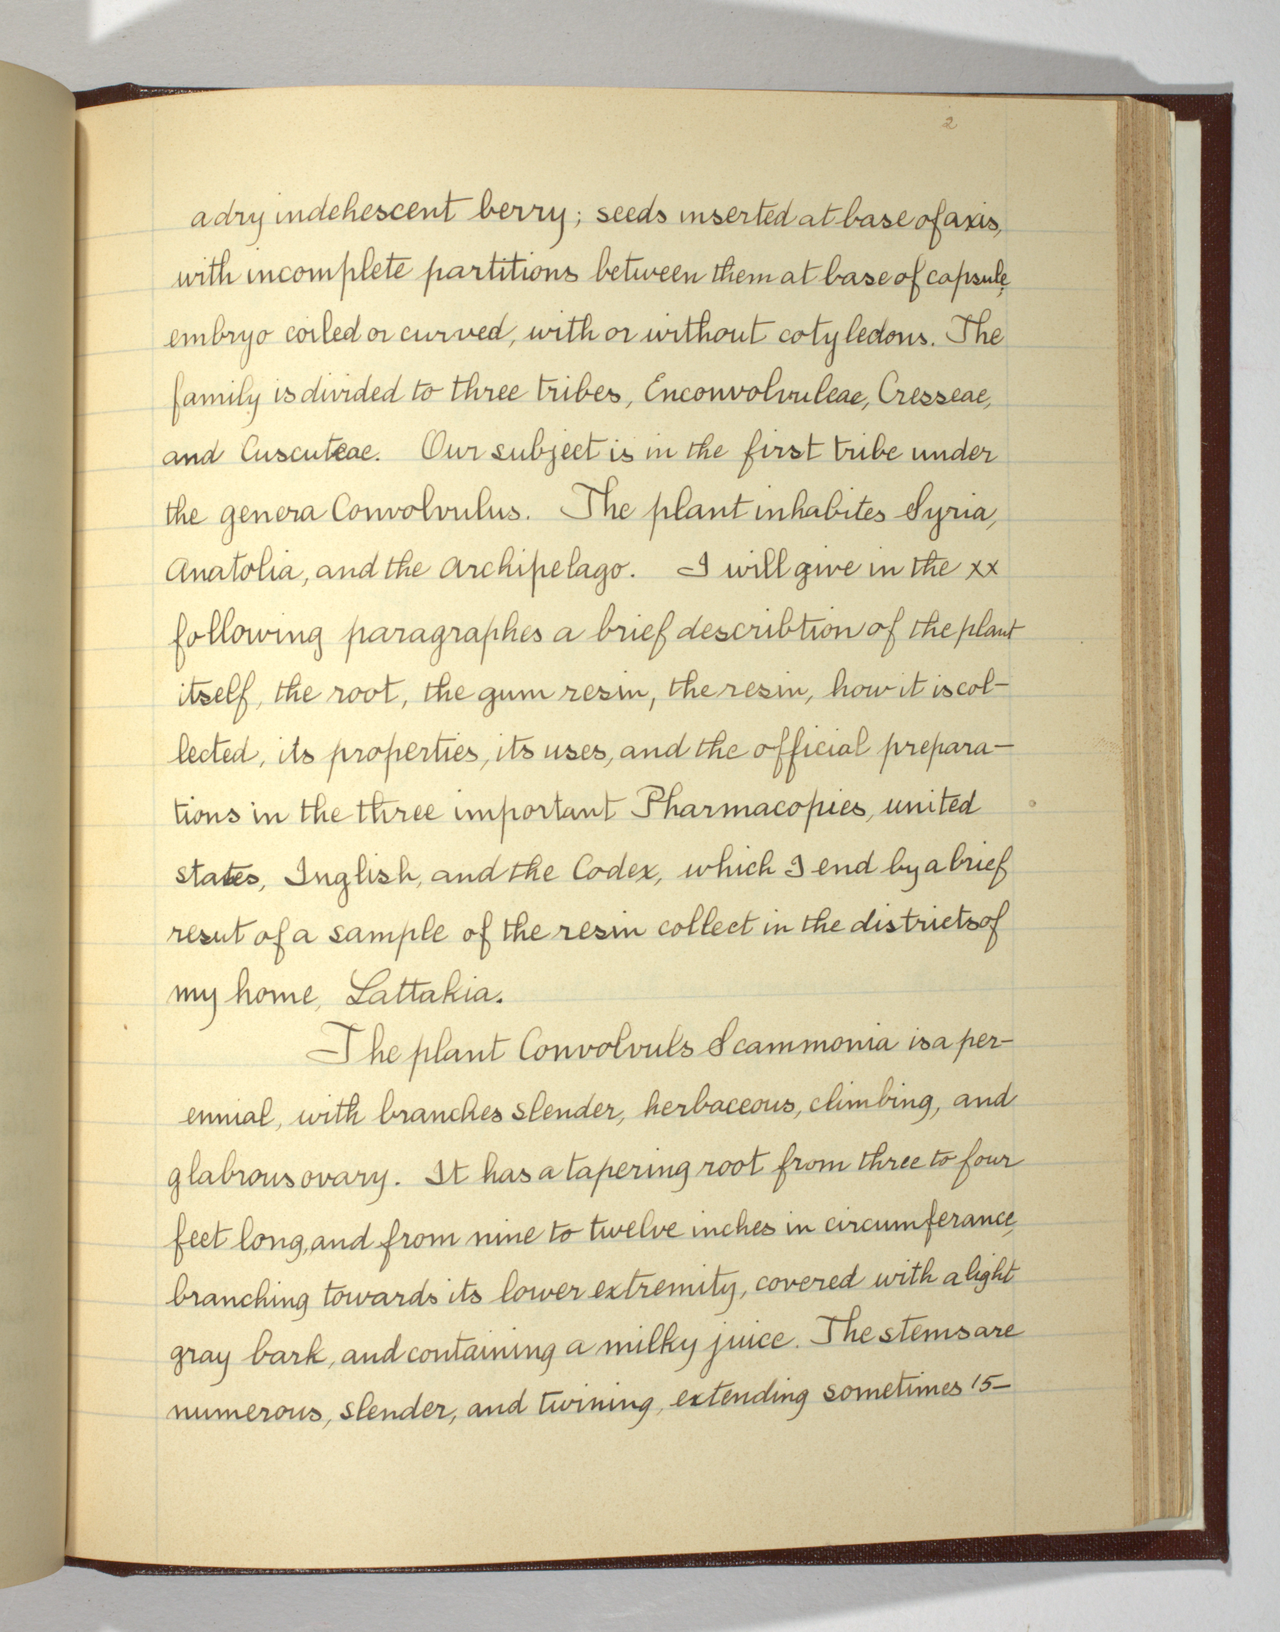 2
a dry indehescent berry; seeds inserted at base of axis,
with incomplete partitions between them at base of capsule,
embryo coiled or curved, with or without cotyledons. The
family is divided to three tribes, Enconvolvuleae, Cresseae,
and Cuscuteae. Our subject is in the first tribe under
the genera Convolvulus. The plant inhabites Syria,
Anatolia, and the Archipelago. I will give in the xx
following paragraphes a brief describtion of the plant
itself, the root, the gum resin, the resin, how it is col-
lected, its properties, its uses, and the official prepara-
tions in the three important Pharmacopies, united
states, Inglish, and the Codex, which I end by a brief
resut of a sample of the resin collect in the districts of
my home, Lattakia.
The plant Convolvuls Scammonia is a per-
ennial, with branches slender, herbaceous, climbing, and
glabrous ovary. It has a tapering root from three to four
feet long, and from nine to twelve inches in circumferance,
branching towards its lower extremity, covered with a light
gray bark, and containing a milky juice. The stems are
numerous, slender, and twining, extending sometimes 15-